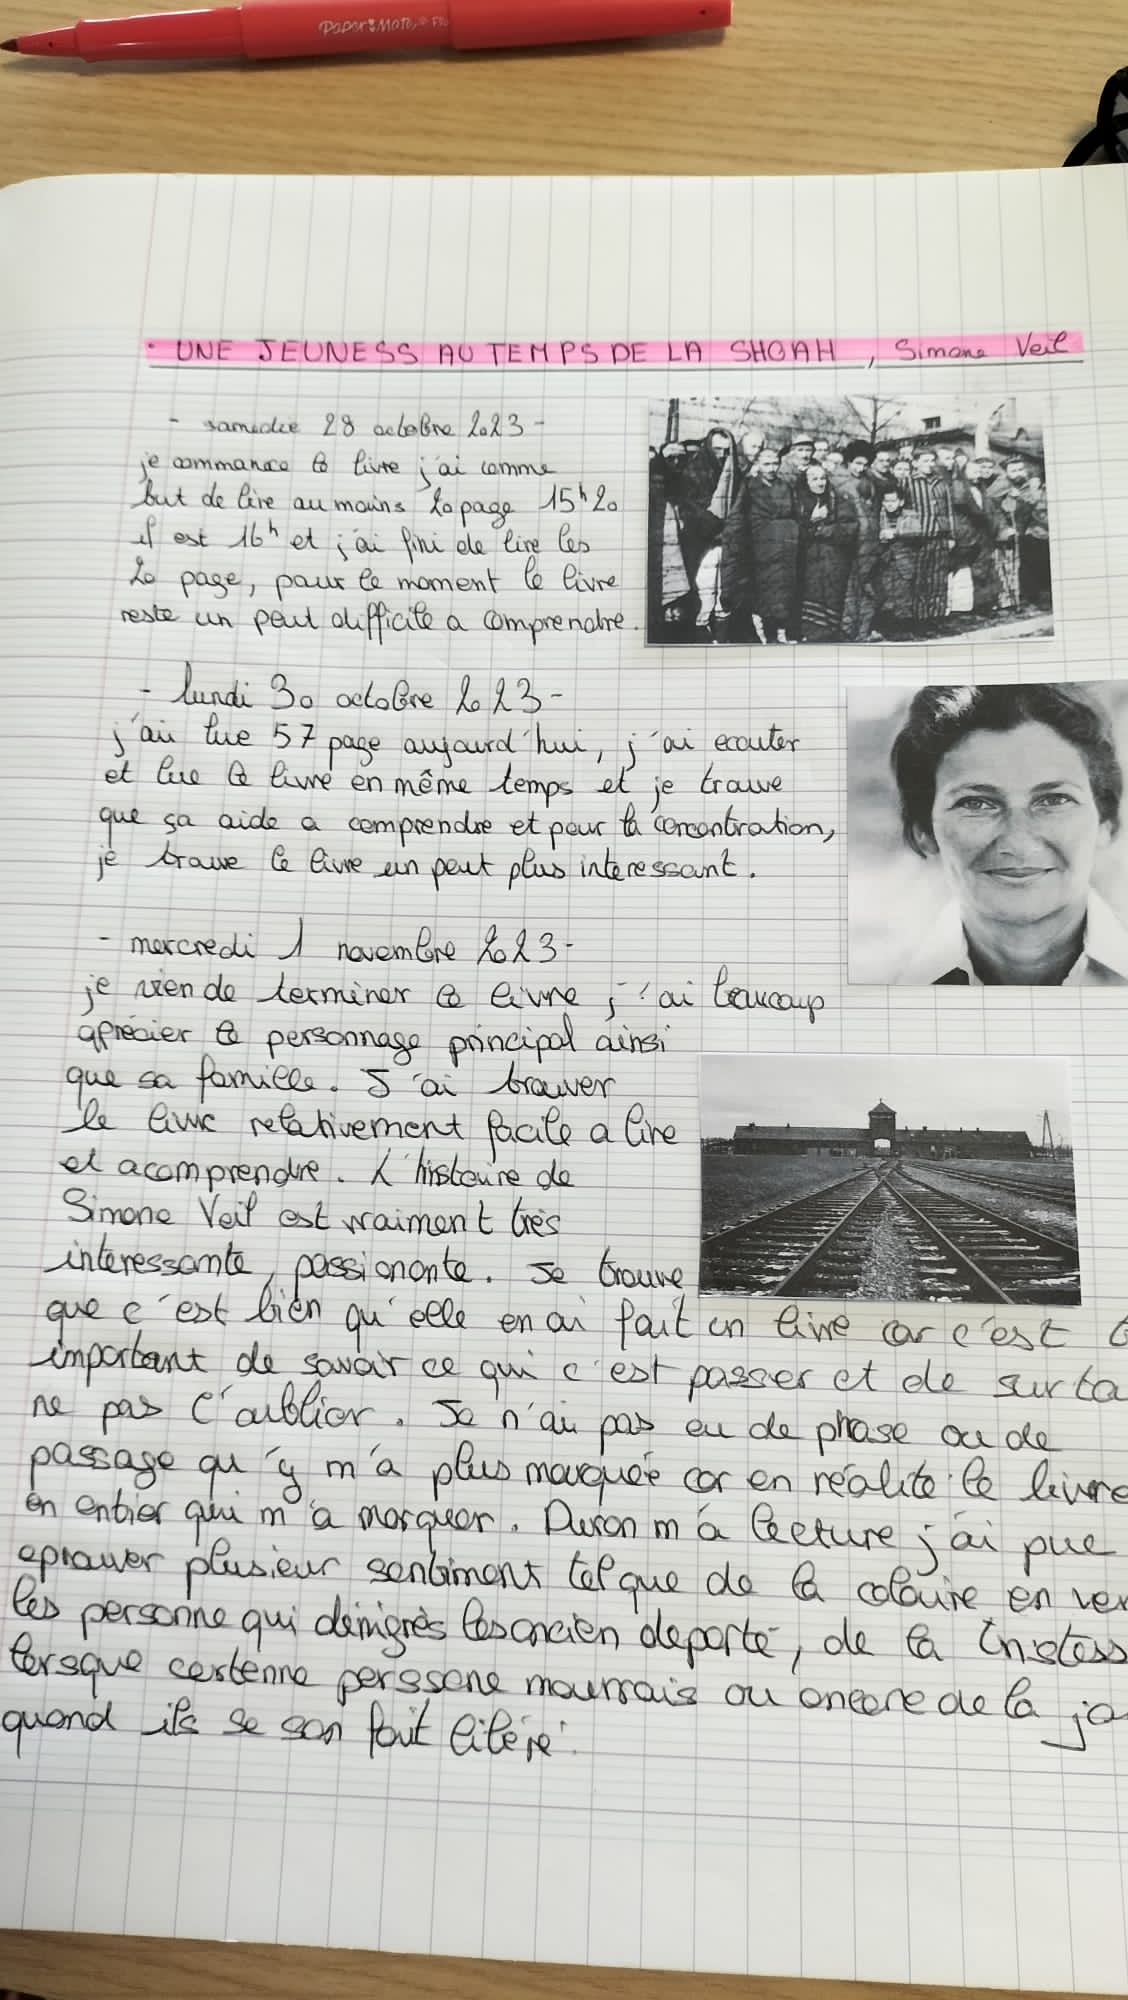 PaperMate
· UNE JEUNESS AU TEMPS DE LA SHOAH, Simone Veil
- samedie 28 octobre 2023 -
je commance le livre j'ai comme
but de lire au moins 20 page 15h20
il est 16h et j'ai fini de lire les
20 page, pour le moment le livre
reste un peut difficile a comprendre.
- lundi 30 octobre 2023 -
j'ai lue 57 page aujourd'hui, j'ai ecouter
et lue le livre en même temps et je trouve
que sa aide a comprendre et pour la concentration,
je trouve le livre un peut plus interessant.
- mercredi 1 novembre 2023 -
je vien de terminer le livre j'ai beaucoup
aprécier le personnage principal ainsi
que sa famille. J'ai trouver
le livre relativement facile a lire
et a comprendre. L'histoire de
Simone Veil est vraiment très
interessante, passionante. Je trouve
que c'est bien qu'elle en ai fait un livre car c'est
important de savoir ce qui c'est passer et de
ne pas l'oublier. Je n'ai pas eu de phase ou de
passage qu'y m'a plus marquée car en réalité le livre
en entier qui m'a marquer. Duran m'a lecture j'ai pue
eprouver plusieur sentiment tel que de la colaire en ver
les personne qui dénigrès les ancien deporté, de la tristess
lorsque certenne perssone mourrais ou encore de la jo
quand ils se son fait libéré.